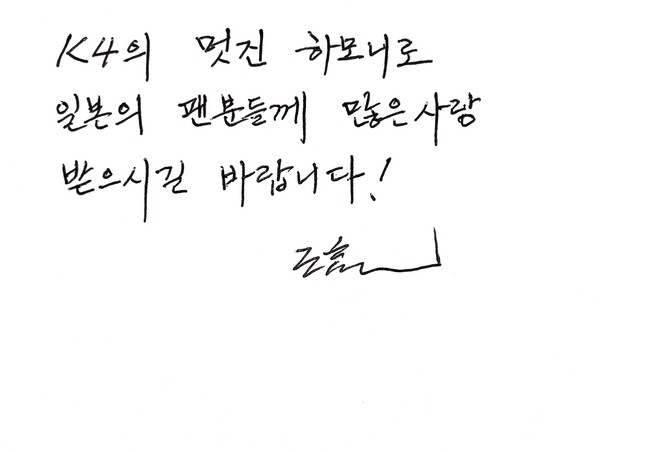 K4의 멋진 하모니로
일본의 팬분들께 많은사랑
받으시길 바랍니다!